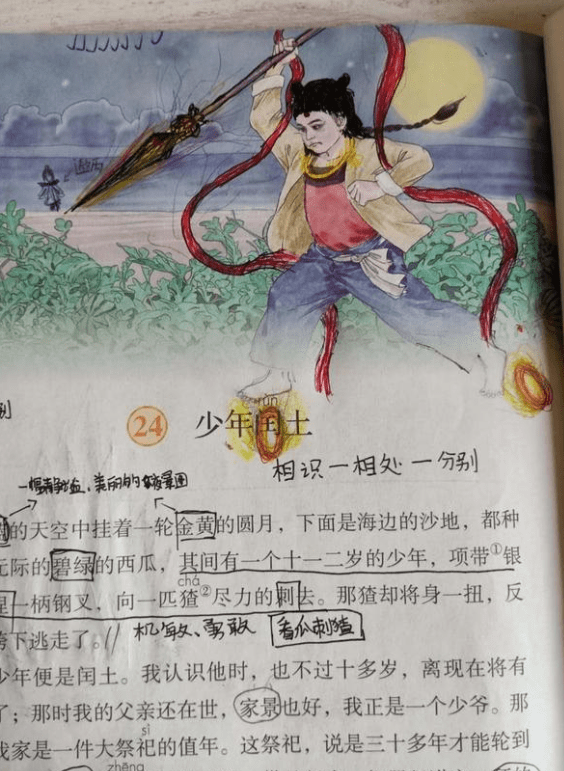 24 少年闰土
相识一相处一分别
的天空中挂着一轮金黄的圆月，下面是海边的沙地，都种
无际的碧绿的西瓜，其间有一个十一二岁的少年，项带①银
捏一柄钢叉，向一匹猹②尽力的刺去。那猹却将身一扭，反
chá
胯下逃走了。//
机敏、勇敢 看瓜刺猹
少年便是闰土。我认识他时，也不过十多岁，离现在将有
了；那时我的父亲还在世，家景也好，我正是一个少爷。那
我家是一件大祭祀的值年。这祭祀，说是三十多年才能轮到
sì
zhēng